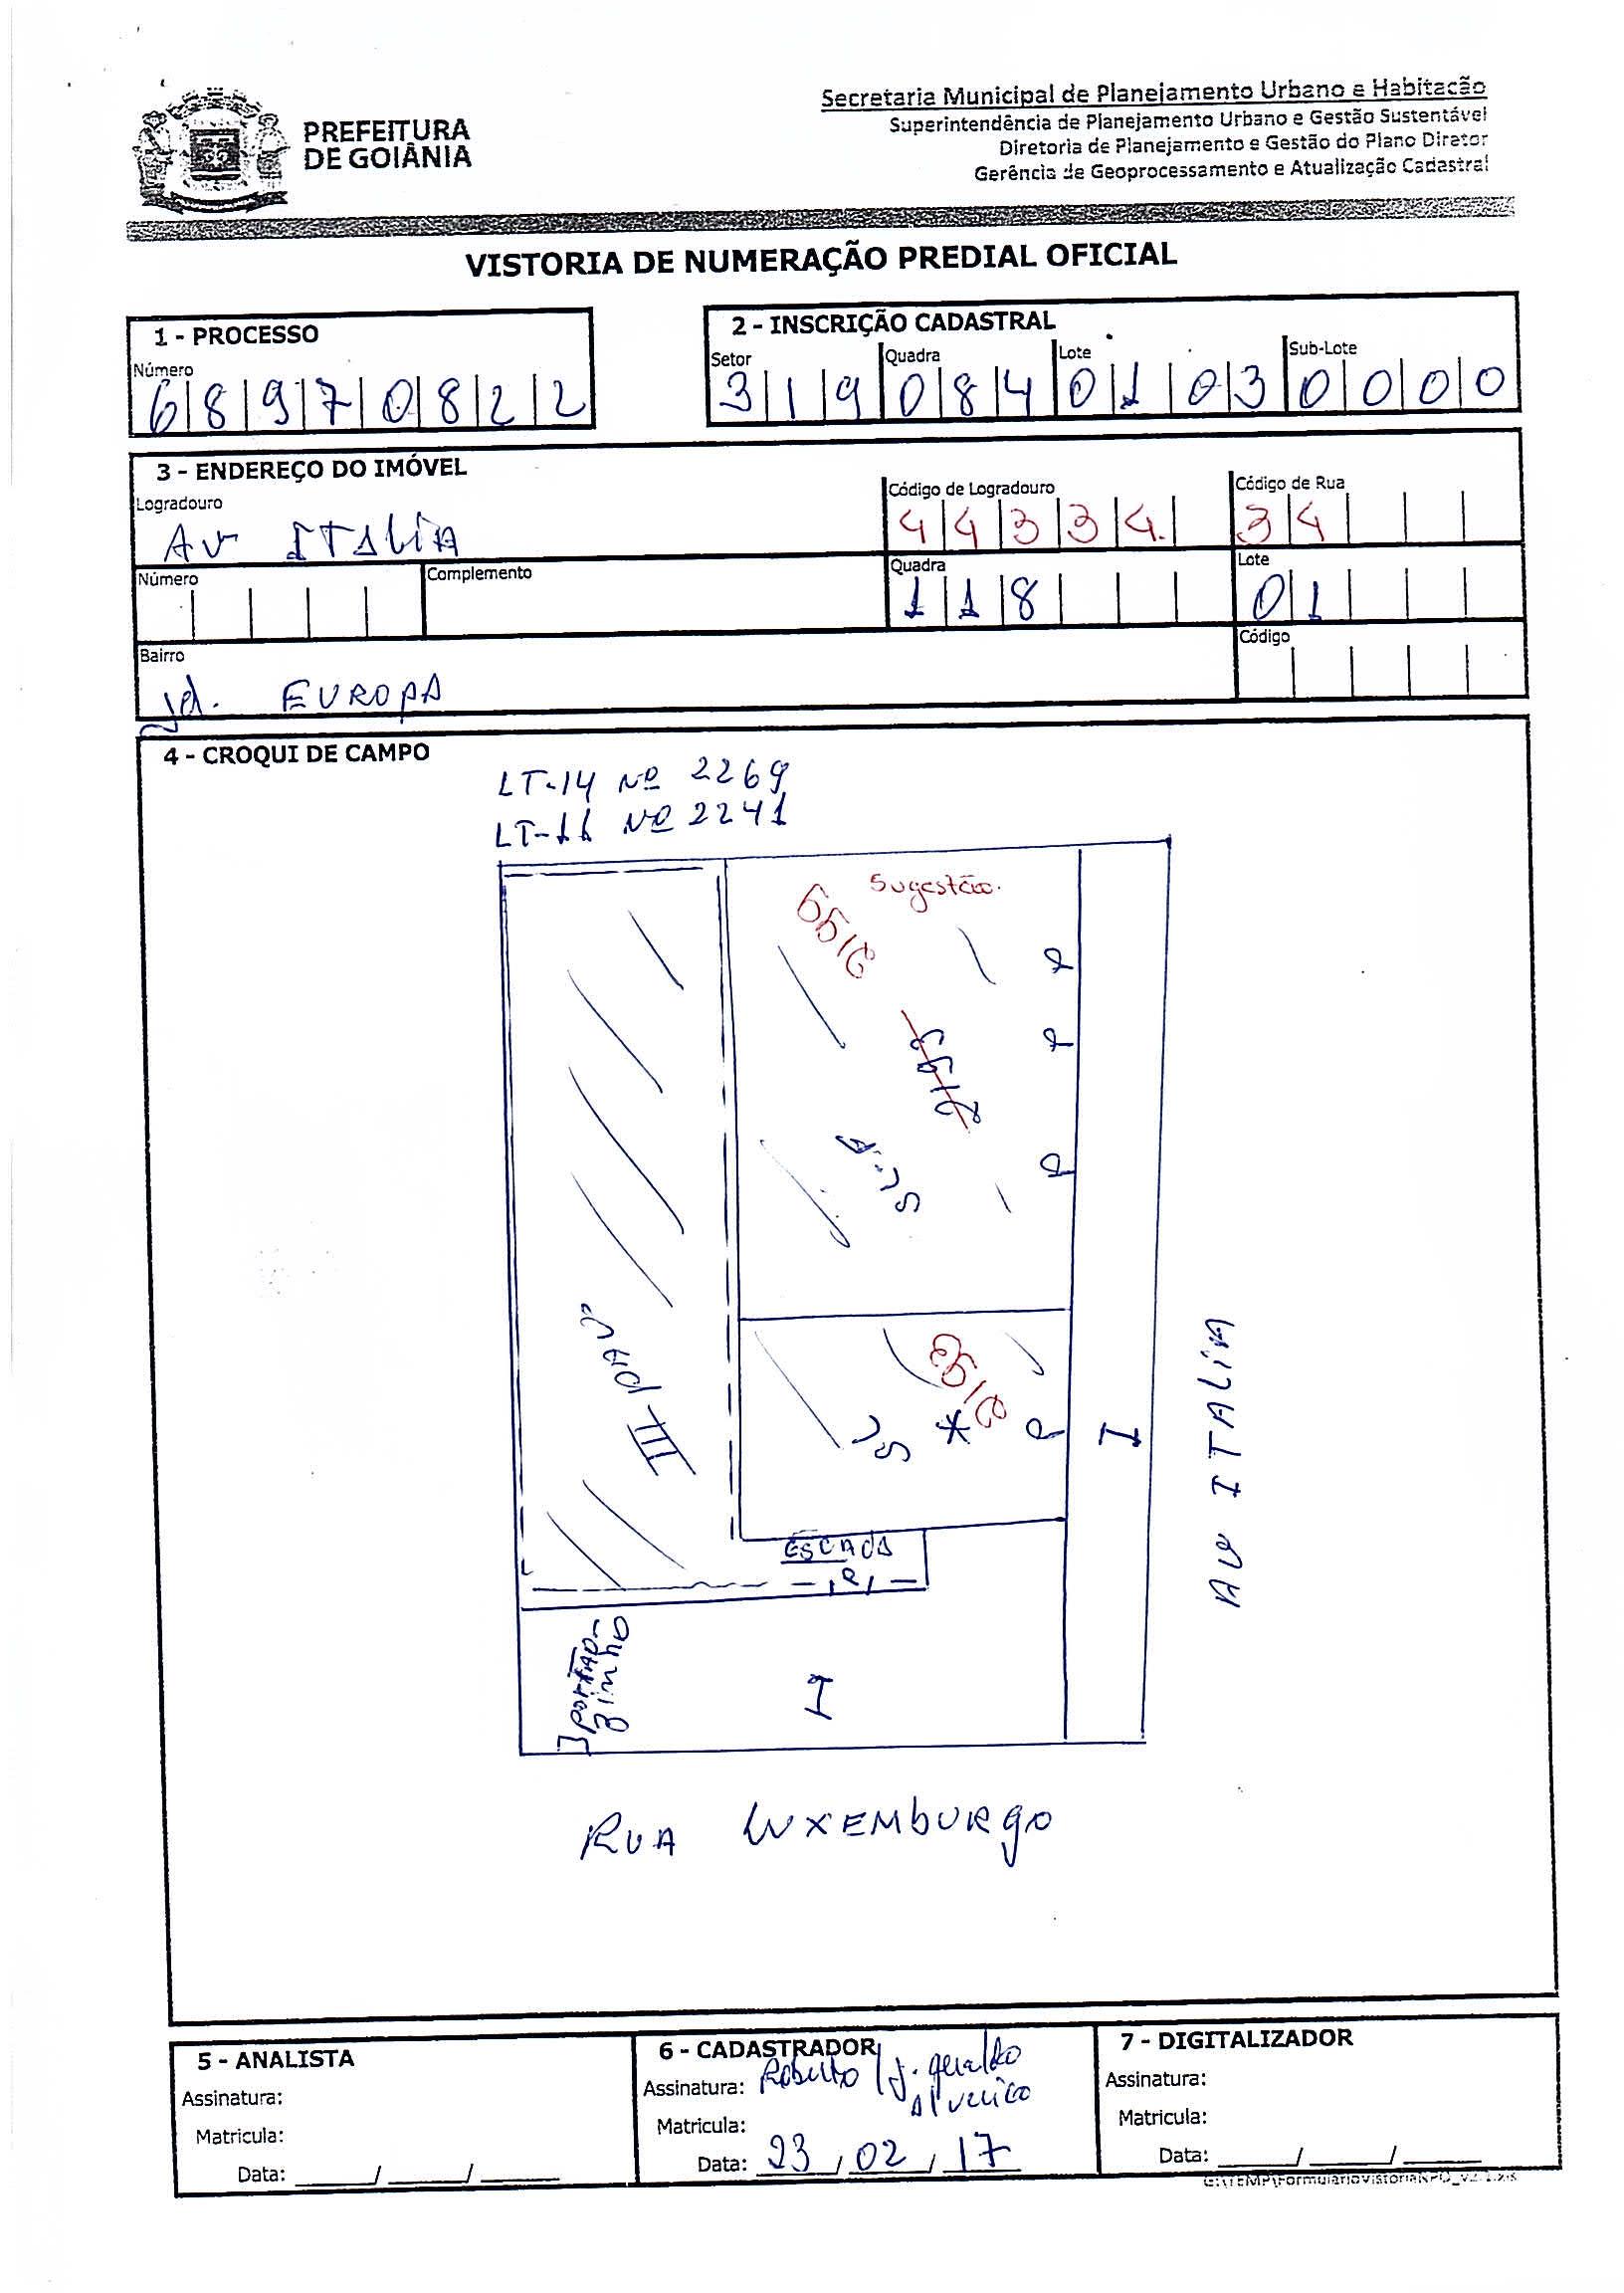 PREFEITURA
DE GOIÂNIA
Secretaria Municipal de Planejamento Urbano e Habitação
Superintendência de Planejamento Urbano e Gestão Sustentável
Diretoria de Planejamento e Gestão do Plano Diretor
Gerência de Geoprocessamento e Atualização Cadastral
VISTORIA DE NUMERAÇÃO PREDIAL OFICIAL
1 - PROCESSO
Número
6 8 9 7 0 8 2 2
2 - INSCRIÇÃO CADASTRAL
Setor Quadra Lote Sub-Lote
3 1 9 0 8 4 0 1 0 3 0 0 0 0
3 - ENDEREÇO DO IMÓVEL
Logradouro Código de Logradouro Código de Rua
Av ITALIA 4 4 3 3 4. 3 4
Número Complemento Quadra Lote
1 1 8 0 1
Bairro Código
Jd. EUROPA
4 - CROQUI DE CAMPO
LT-14 Nº 2269
LT-11 Nº 2241
Sugestão.
2199
2195
SL-A
III PAV.
2193
SL *
I
AV ITALIA
ESCADA
PORTÃO-
ZINHO
I
RUA LUXEMBURGO
5 - ANALISTA
Assinatura:
Matricula:
Data: / /
6 - CADASTRADOR
Assinatura: Roberto / J. Geraldo
Matricula:
Data: 23 / 02 / 17
7 - DIGITALIZADOR
Assinatura:
Matricula:
Data: / /